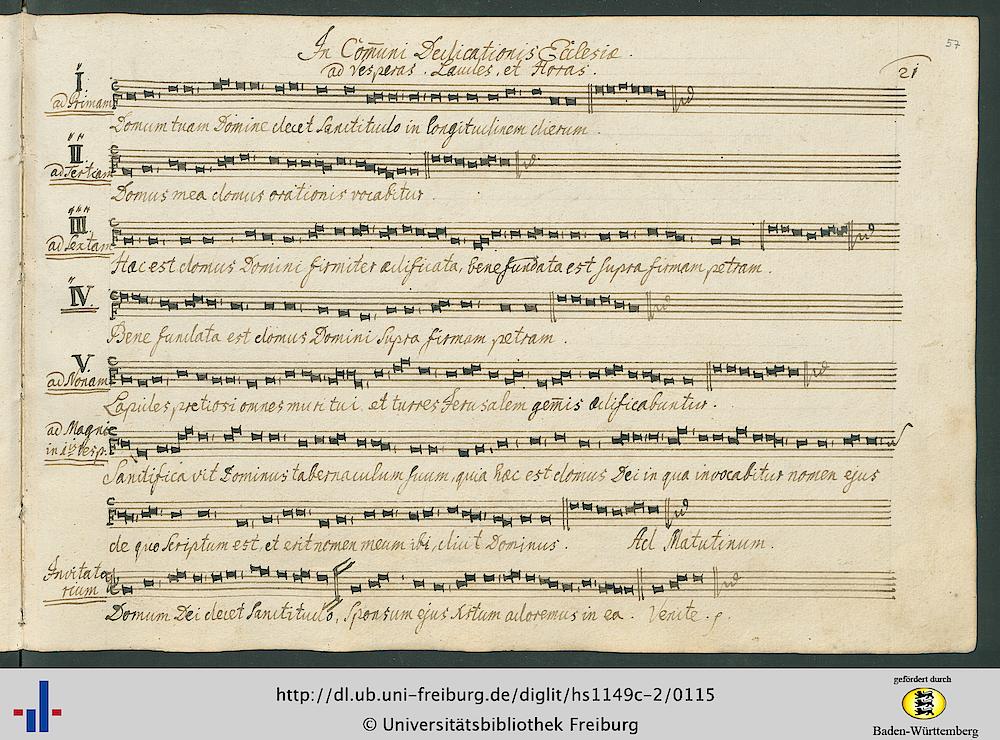 57
In Com̄uni Dedicationis Ecclesiæ.
ad Vesperas. Laudes, et Horas.
21
I
ad Primam
Domum tuam Domine decet Sanctitudo in longitudinem dierum.
II.
ad Tertiam
Domus mea domus orationis vocabitur.
III
ad Sextam
Hæc est domus Domini firmiter ædificata, bene fundata est supra firmam petram.
IV.
Bene fundata est domus Domini supra firmam petram.
V.
ad Nonam
Lapides pretiosi omnes muri tui, et turres Jerusalem gem̄is ædificabuntur.
ad Magni
in 1is Vesp.
Sanctificavit Dominus tabernaculum suum, quia hæc est domus Dei in qua invocabitur nomen ejus
de quo scriptum est, et erit nomen meum ibi, dicit Dominus. Ad Matutinum.
Invitato
rium
Domum Dei decet Sanctitudo, Sponsum ejus Xstum adoremus in ea. Venite.
http://dl.ub.uni-freiburg.de/diglit/hs1149c-2/0115
© Universitätsbibliothek Freiburg
gefördert durch
Baden-Württemberg